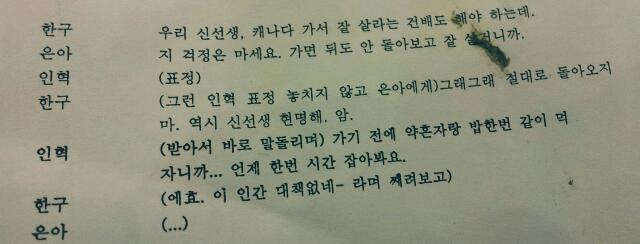 한구 우리 신선생, 캐나다 가서 잘 살라는 건배도 해야 하는데.
은아 지 걱정은 마세요. 가면 뒤도 안 돌아보고 잘 살거니까.
인혁 (표정)
한구 (그런 인혁 표정 놓치지 않고 은아에게)그래그래 절대로 돌아오지
마. 역시 신선생 현명해. 암.
인혁 (받아서 바로 말돌리며) 가기 전에 약혼자랑 밥한번 같이 먹
자니까... 언제 한번 시간 잡아봐요.
한구 (에효. 이 인간 대책없네- 라며 째려보고)
은아 (...)